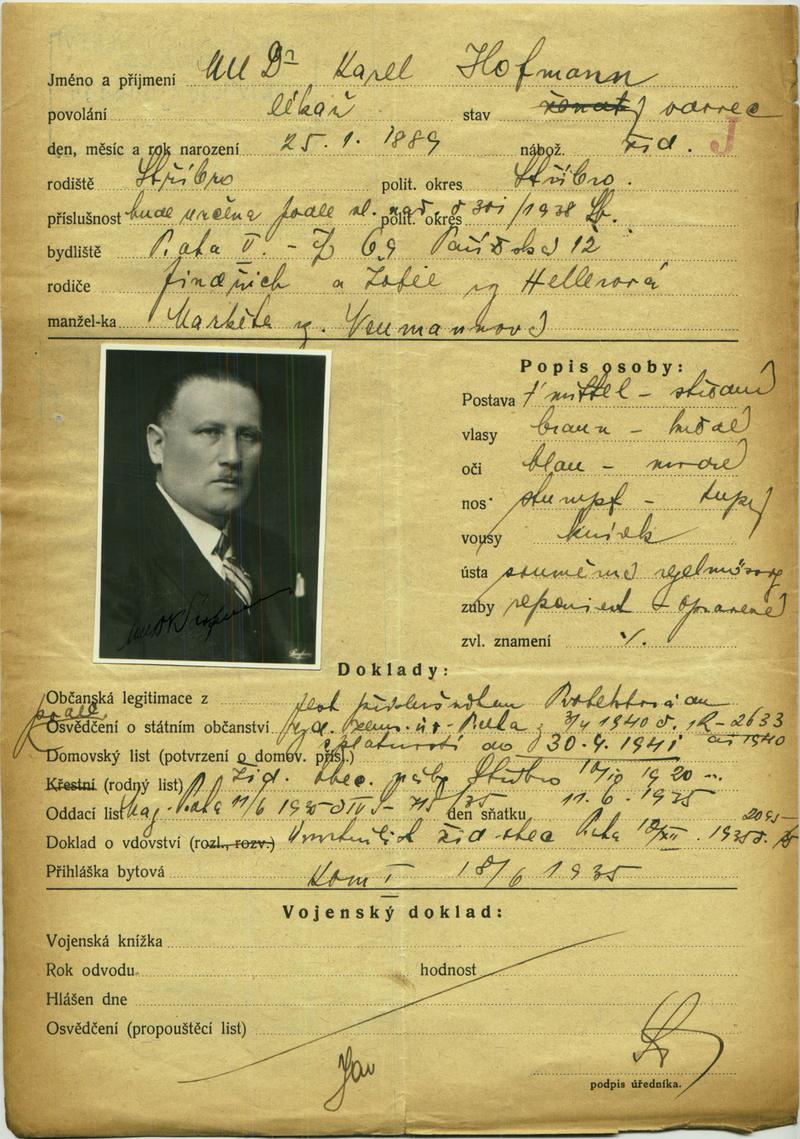 Jméno a příjmení MUDr Karel Hofmann
povolání lékař stav ženatý vdovec
den, měsíc a rok narození 25. 1. 1889 nábož. žid. J
rodiště Stříbro polit. okres Stříbro.
příslušnost bude určena podle vl. nař. č 301/1938 Sb. polit. okres
bydliště Praha V. - 69 Pařížská 12
rodiče Jindřich a Hellerová
manžel-ka Markéta Neumannová
Popis osoby:
Postava mittel - střední
vlasy braun - hnědé
oči blau - modré
nos stumpf - tupý
vousy knírek
ústa souměrná regelmässig
zuby repariert - opravené
zvl. znamení ./.
Doklady:
Občanská legitimace z
podle
Osvědčení o státním občanství Praha 1940 č. 1R-2633
platností do 30.4.1941 1940
Domovský list (potvrzení o domov. přísl.)
Křestní (rodný list) Žid. obec. Stříbro 1920
Oddací list Mag. Praha 11/6 1935 den sňatku 11. 6. 1935
Doklad o vdovství (rozl., rozv.) žid obec Praha 1935
Přihláška bytová Kom I 18/6 1935
Vojenský doklad:
Vojenská knížka
Rok odvodu hodnost
Hlášen dne
Osvědčení (propouštěcí list)
podpis úředníka.